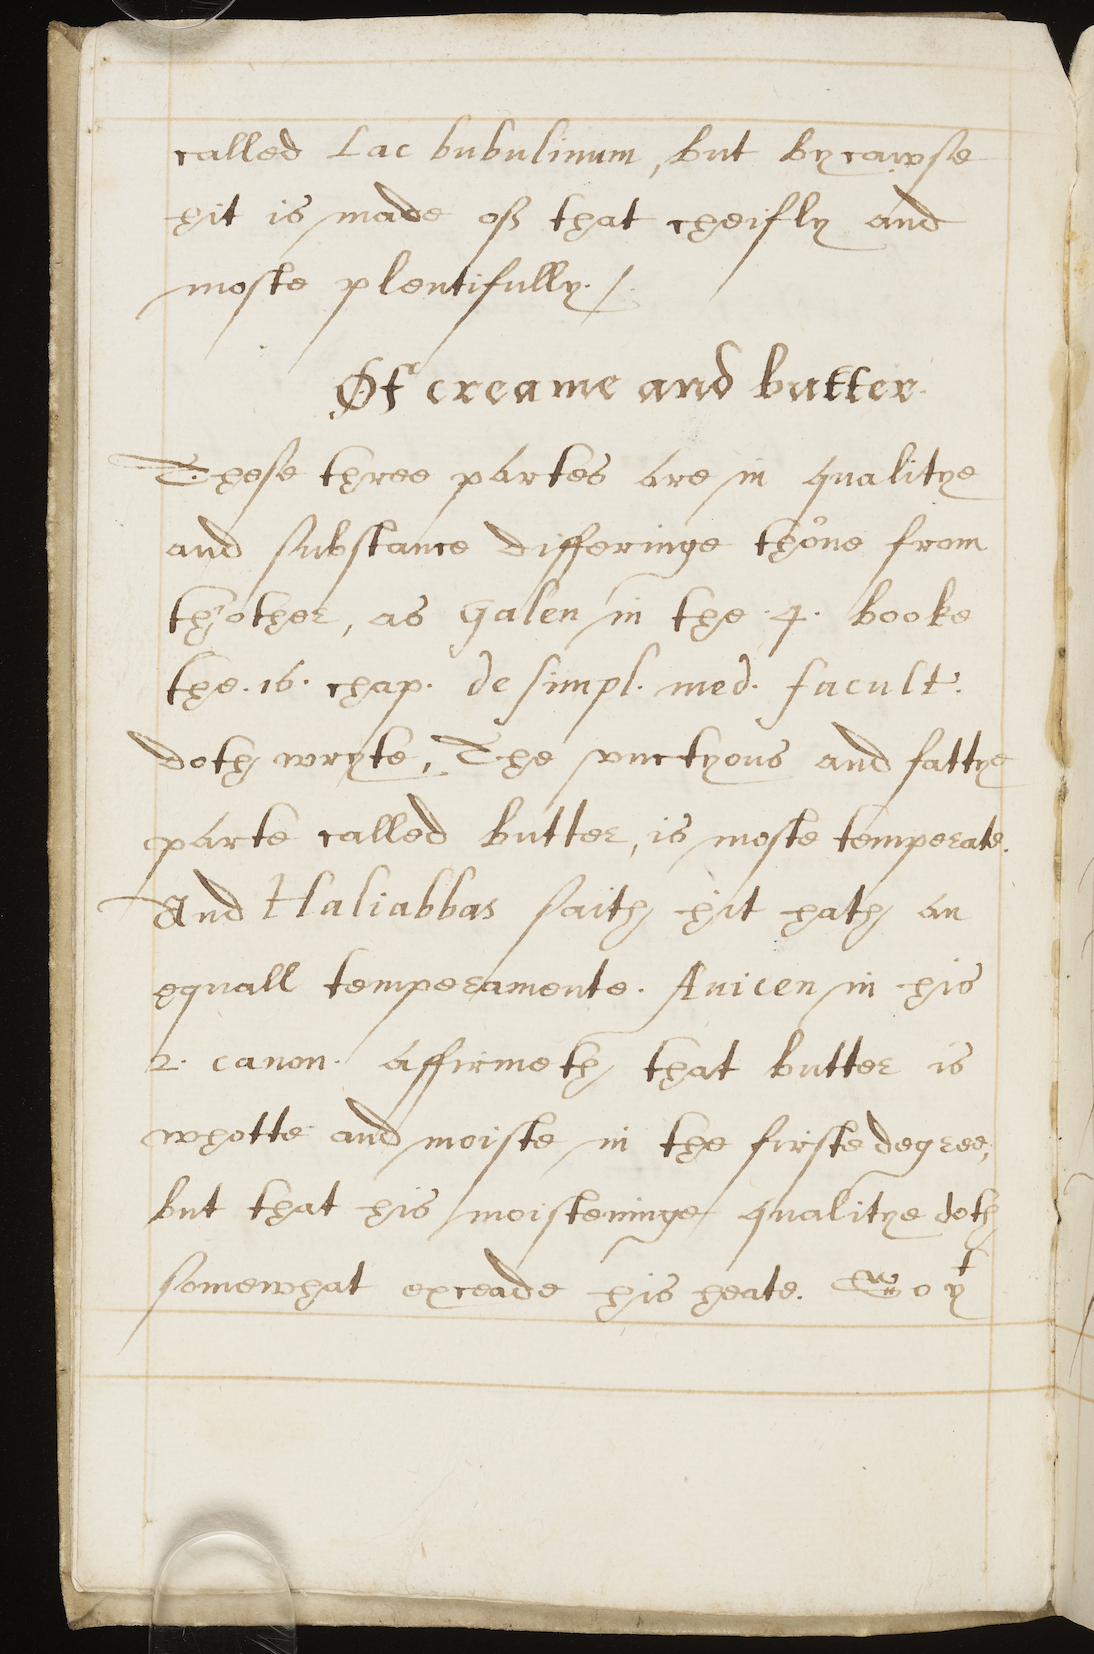 called Lac bubulinum, but bycawse
hit is made off that cheifly and
moste plentifully ./.
Of creame and butter.
These three partes are in qualitye
and substance differinge thone from
th'other, as Galen in the .4. booke
the .16. chap. de simpl. med. facult.
doth wryte, The vnctyous and fattye
parte called butter, is moste temperate.
And Haliabbas saith hit hath an
equall temperamente. Auicen in his
2. canon. affirmeth that butter is
whotte and moiste in the firste degree,
but that his moisteninge qualitye doth
somewhat exceade his heate. So yt